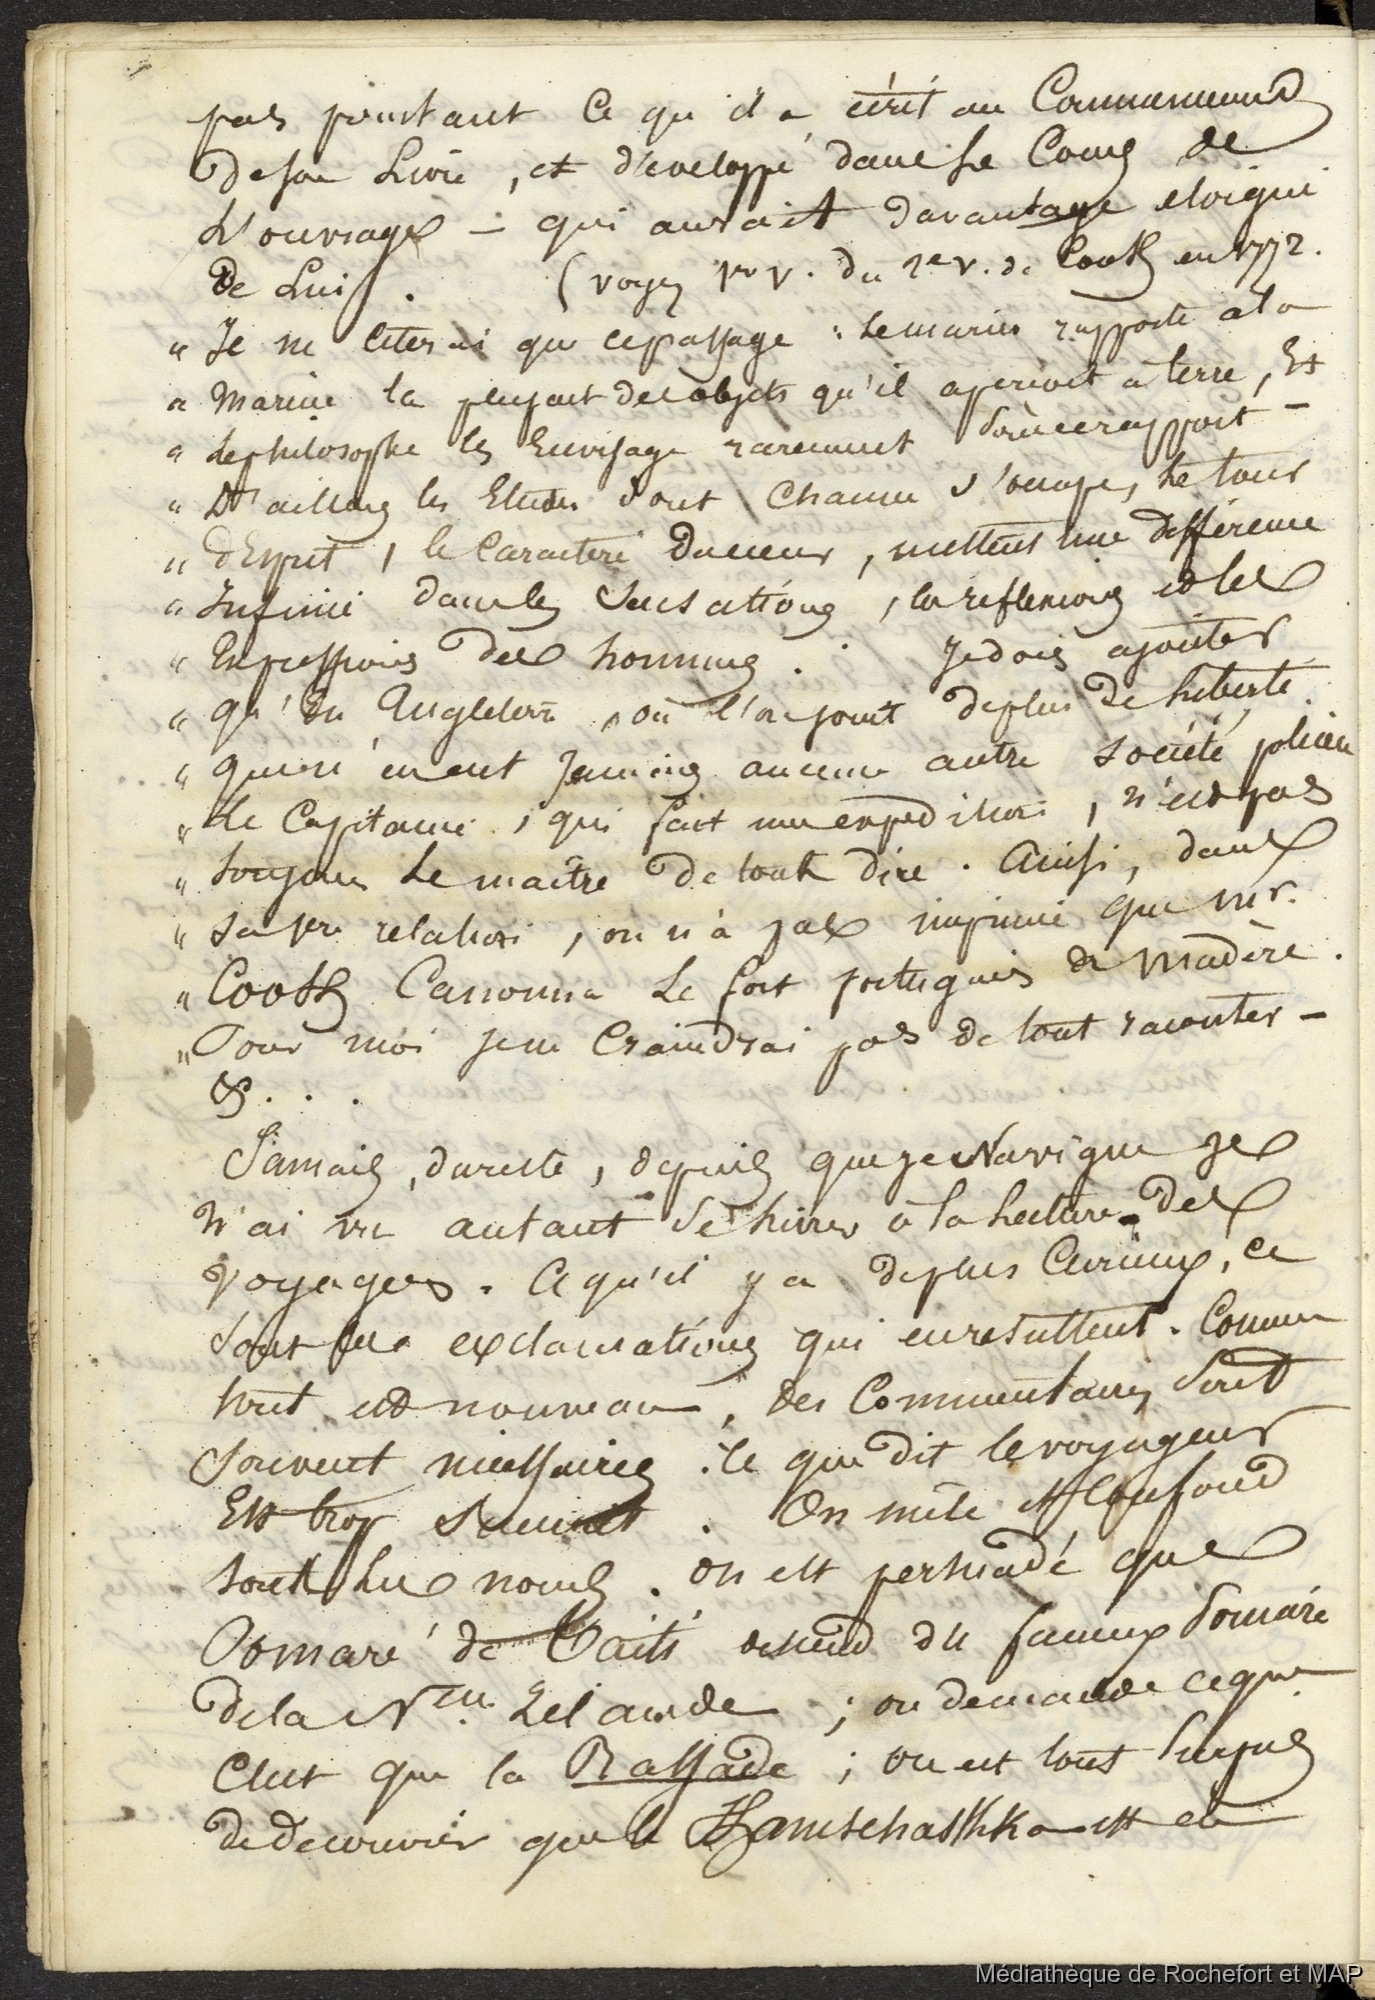 pas pourtant ce qu'il a écrit au Commencement
de son Livre, et développé dans le Cours de
L'ouvrage — qui aurait davantage eloigné
de Lui. (voyez 1er v. du 2e v. de Cook en 1772.
" Je ne citerai que ce passage : le marin rapporte à la
" Marine la plupart des objets qu'il aperçoit à terre, Et
" le philosophe les Envisage rarement sous ce rapport —
" D'ailleurs les Etudes dont chacun s'occupe, le tour
" d'Esprit, le Caractère du cœur, mettent une différence
" Infinie dans les Sensations, les reflexions et les
" Expressions des hommes. Je dois ajouter
" qu'En Angleterre, où l'on jouit de plus de liberté
" que n'en eut Jamais aucune autre société policée
" Le Capitaine, qui fait une expedition, n'est pas
" toujours le maître de tout dire. Ainsi, dans
" sa 1re relation, on n'a pas imprimé que Mr.
" Cook Canonna le fort portugais de Madère.
" Pour moi je ne Craindrai pas de tout raconter —
&. . .
Jamais, du reste, depuis que je Navigue je
N'ai vu autant se livrer à la Lecture des
Voyages. Ce qu'il y a de plus Curieux, ce
sont les exclamations qui en resultent. Comme
tout est nouveau, des Commentaires sont
souvent nécessaires. Ce que dit le voyageur
Est trop succinct. On mêle et Confond
tous les noms. On est persuadé que
Pomaré de Taïti descend du fameux Pomaré
de la Nlle Zélande ; on demande ce que
C'est que la Rassade ; on est tout surpris
de decouvrir que le Kamtschathka est en
Médiathèque de Rochefort et MAP